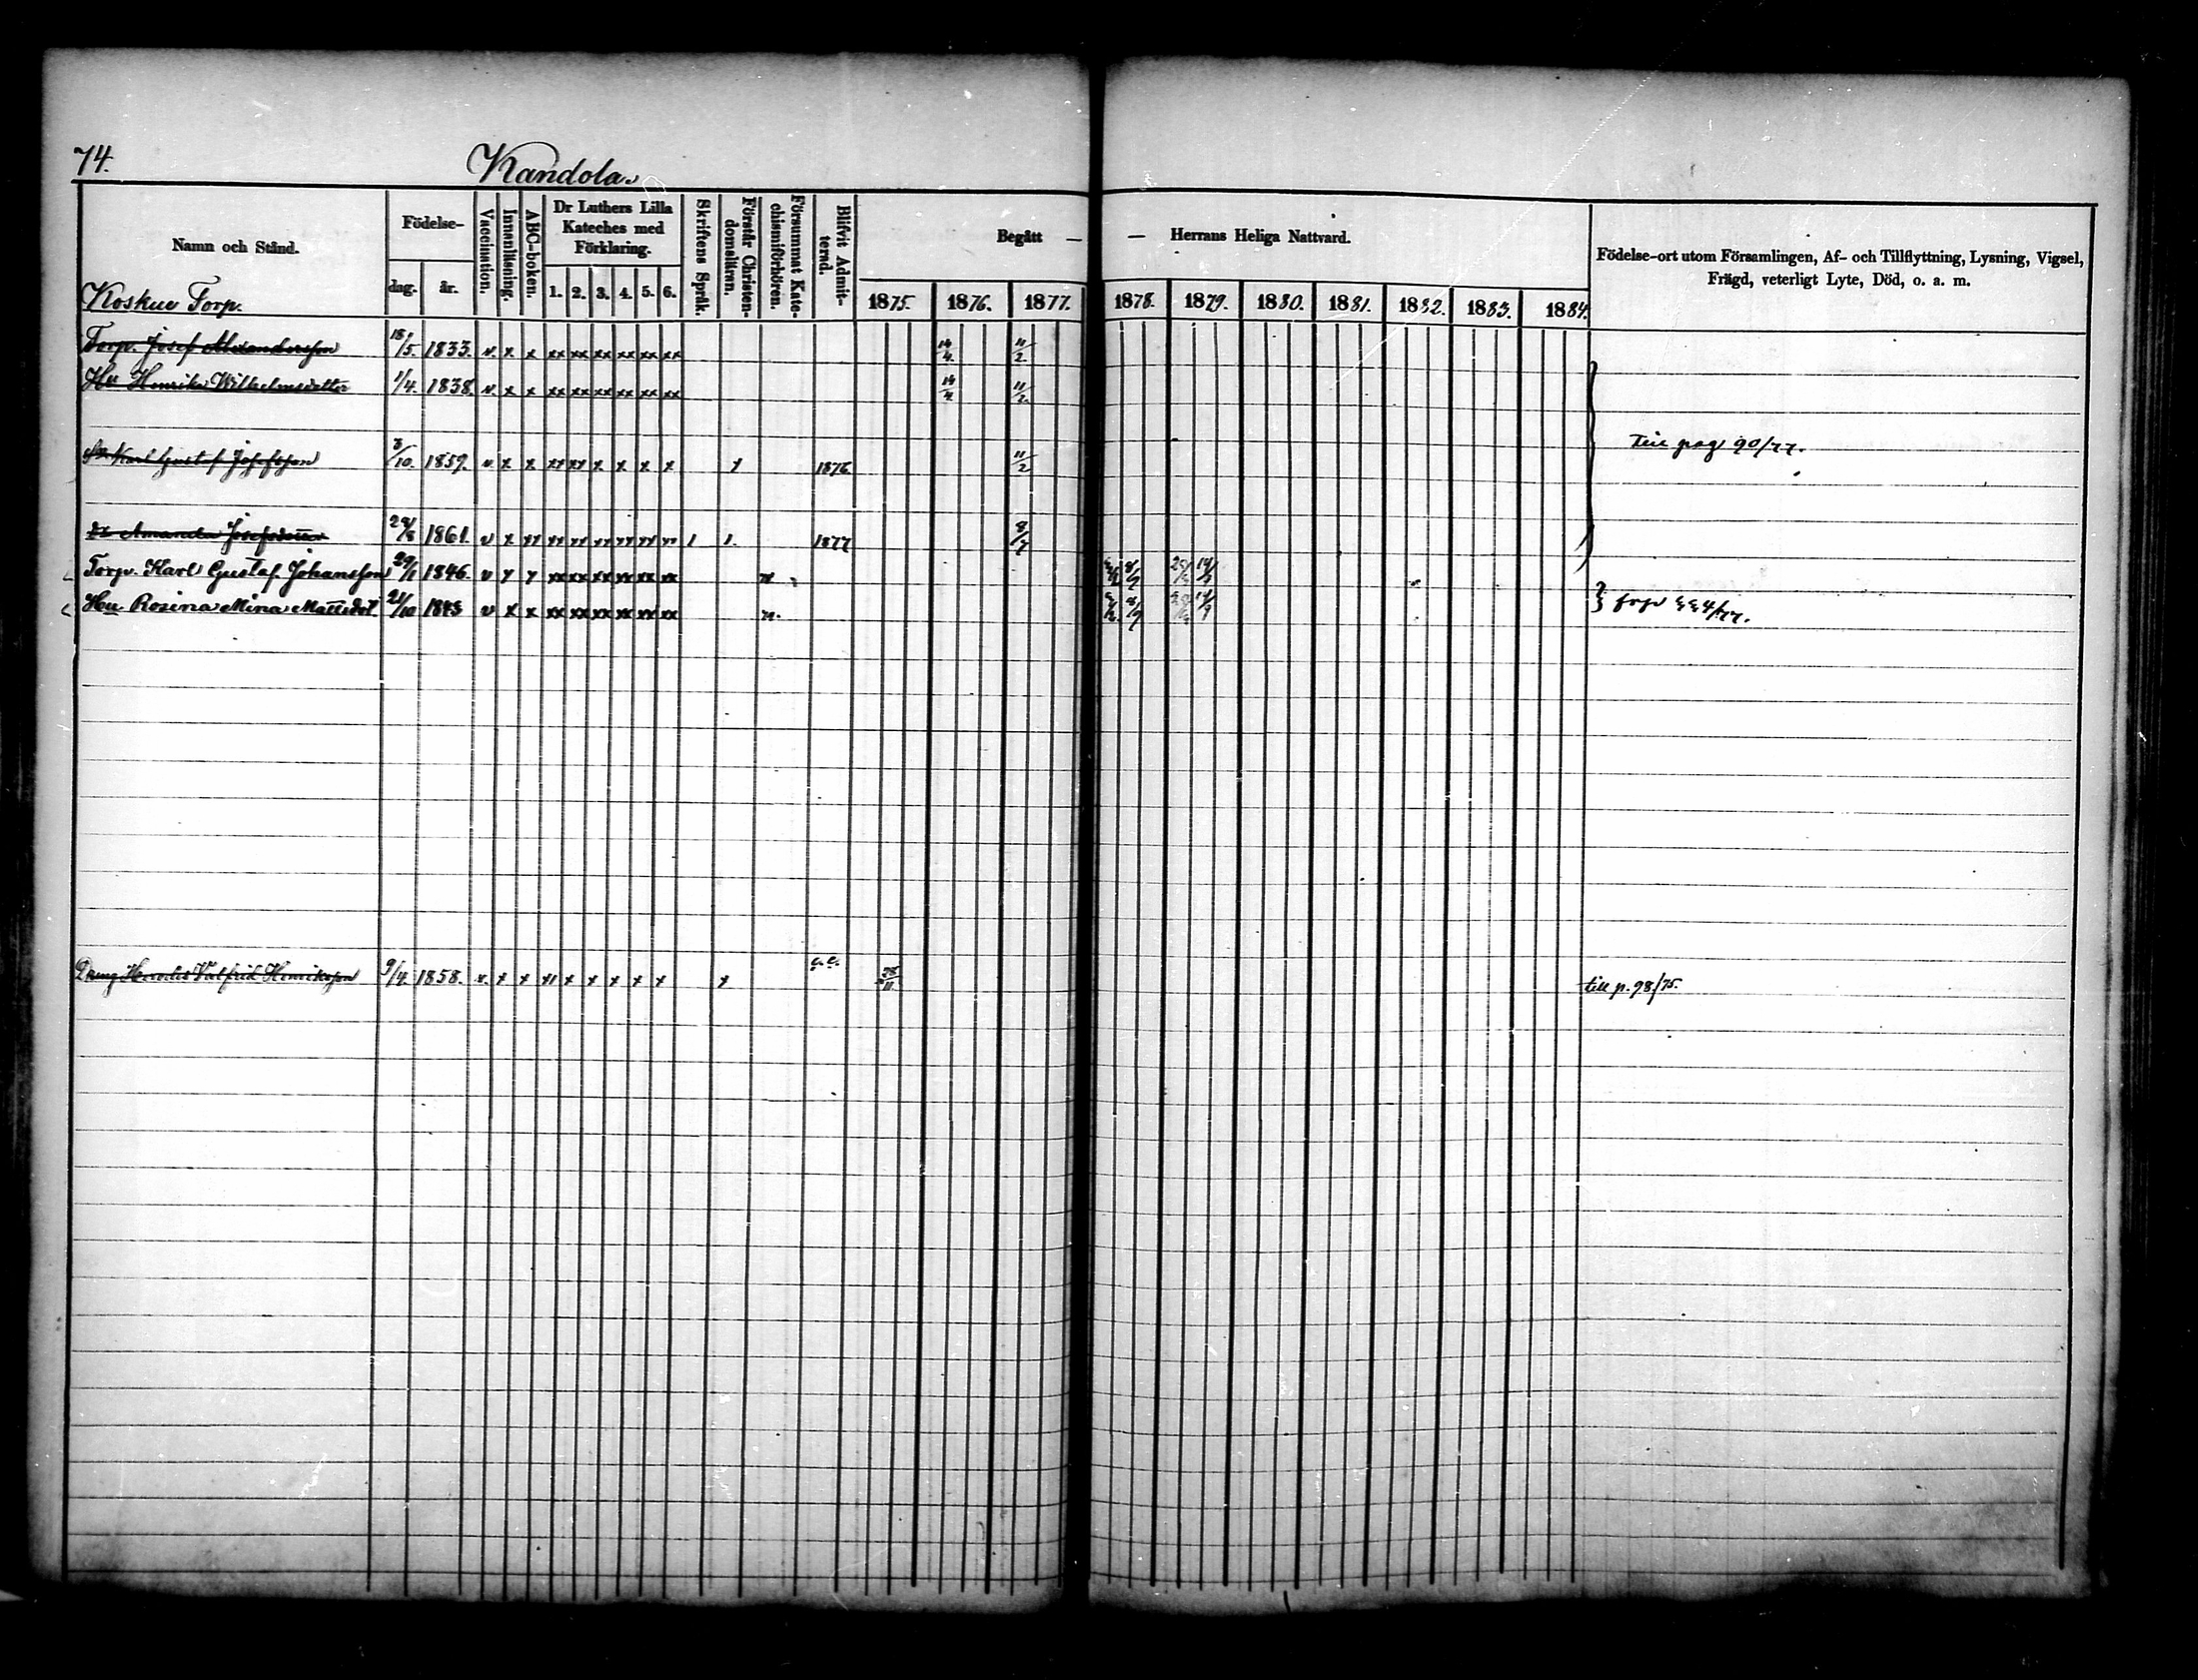 74.
Kandola.
Namn och Stånd.
Födelse-
dag. år.
Vaccination.
Innanläsning.
ABC-boken.
Dr Luthers Lilla
Kateches med
Förklaring.
1. 2. 3. 4. 5. 6.
Skriftens Språk.
Förstår Christen-
domsläran.
Försummat Kate-
chismiförhören.
Blifvit Admit-
terad.
Begått — — Herrans Heliga Nattvard.
1875. 1876. 1877. 1878. 1879. 1880. 1881. 1882. 1883. 1884.
Födelse-ort utom Församlingen, Af- och Tillflyttning, Lysning, Vigsel,
Frägd, veterligt Lyte, Död, o. a. m.
Koskue Torp.
Torp. Josef Alexandersson 18/5. 1833. v. x x xx xx xx xx xx xx 14/4. 11/2.
Hu Henrika Wilhelmsdotter 1/4. 1838. v. x x xx xx xx xx xx xx 14/4 11/2.
Karl Gustaf Josefsson 3/10. 1859. v x x xx xx x x x x x 1876 11/2
till pag 90/77.
Amanda Josefsdotter 1861. v x xx xx xx xx xx xx xx 1 1. 1877 8/7
Torp. Karl Gustaf Johansson 29/1 1846. v x x xx xx xx xx xx xx
Hu Rosina Mina Mattsdot. 21/10 1843 v x x xx xx xx xx xx xx
Dreng Valfrid Henriksson 9/4. 1858. v. x x x1 x x x x x x 28/11.
till p. 98/75.